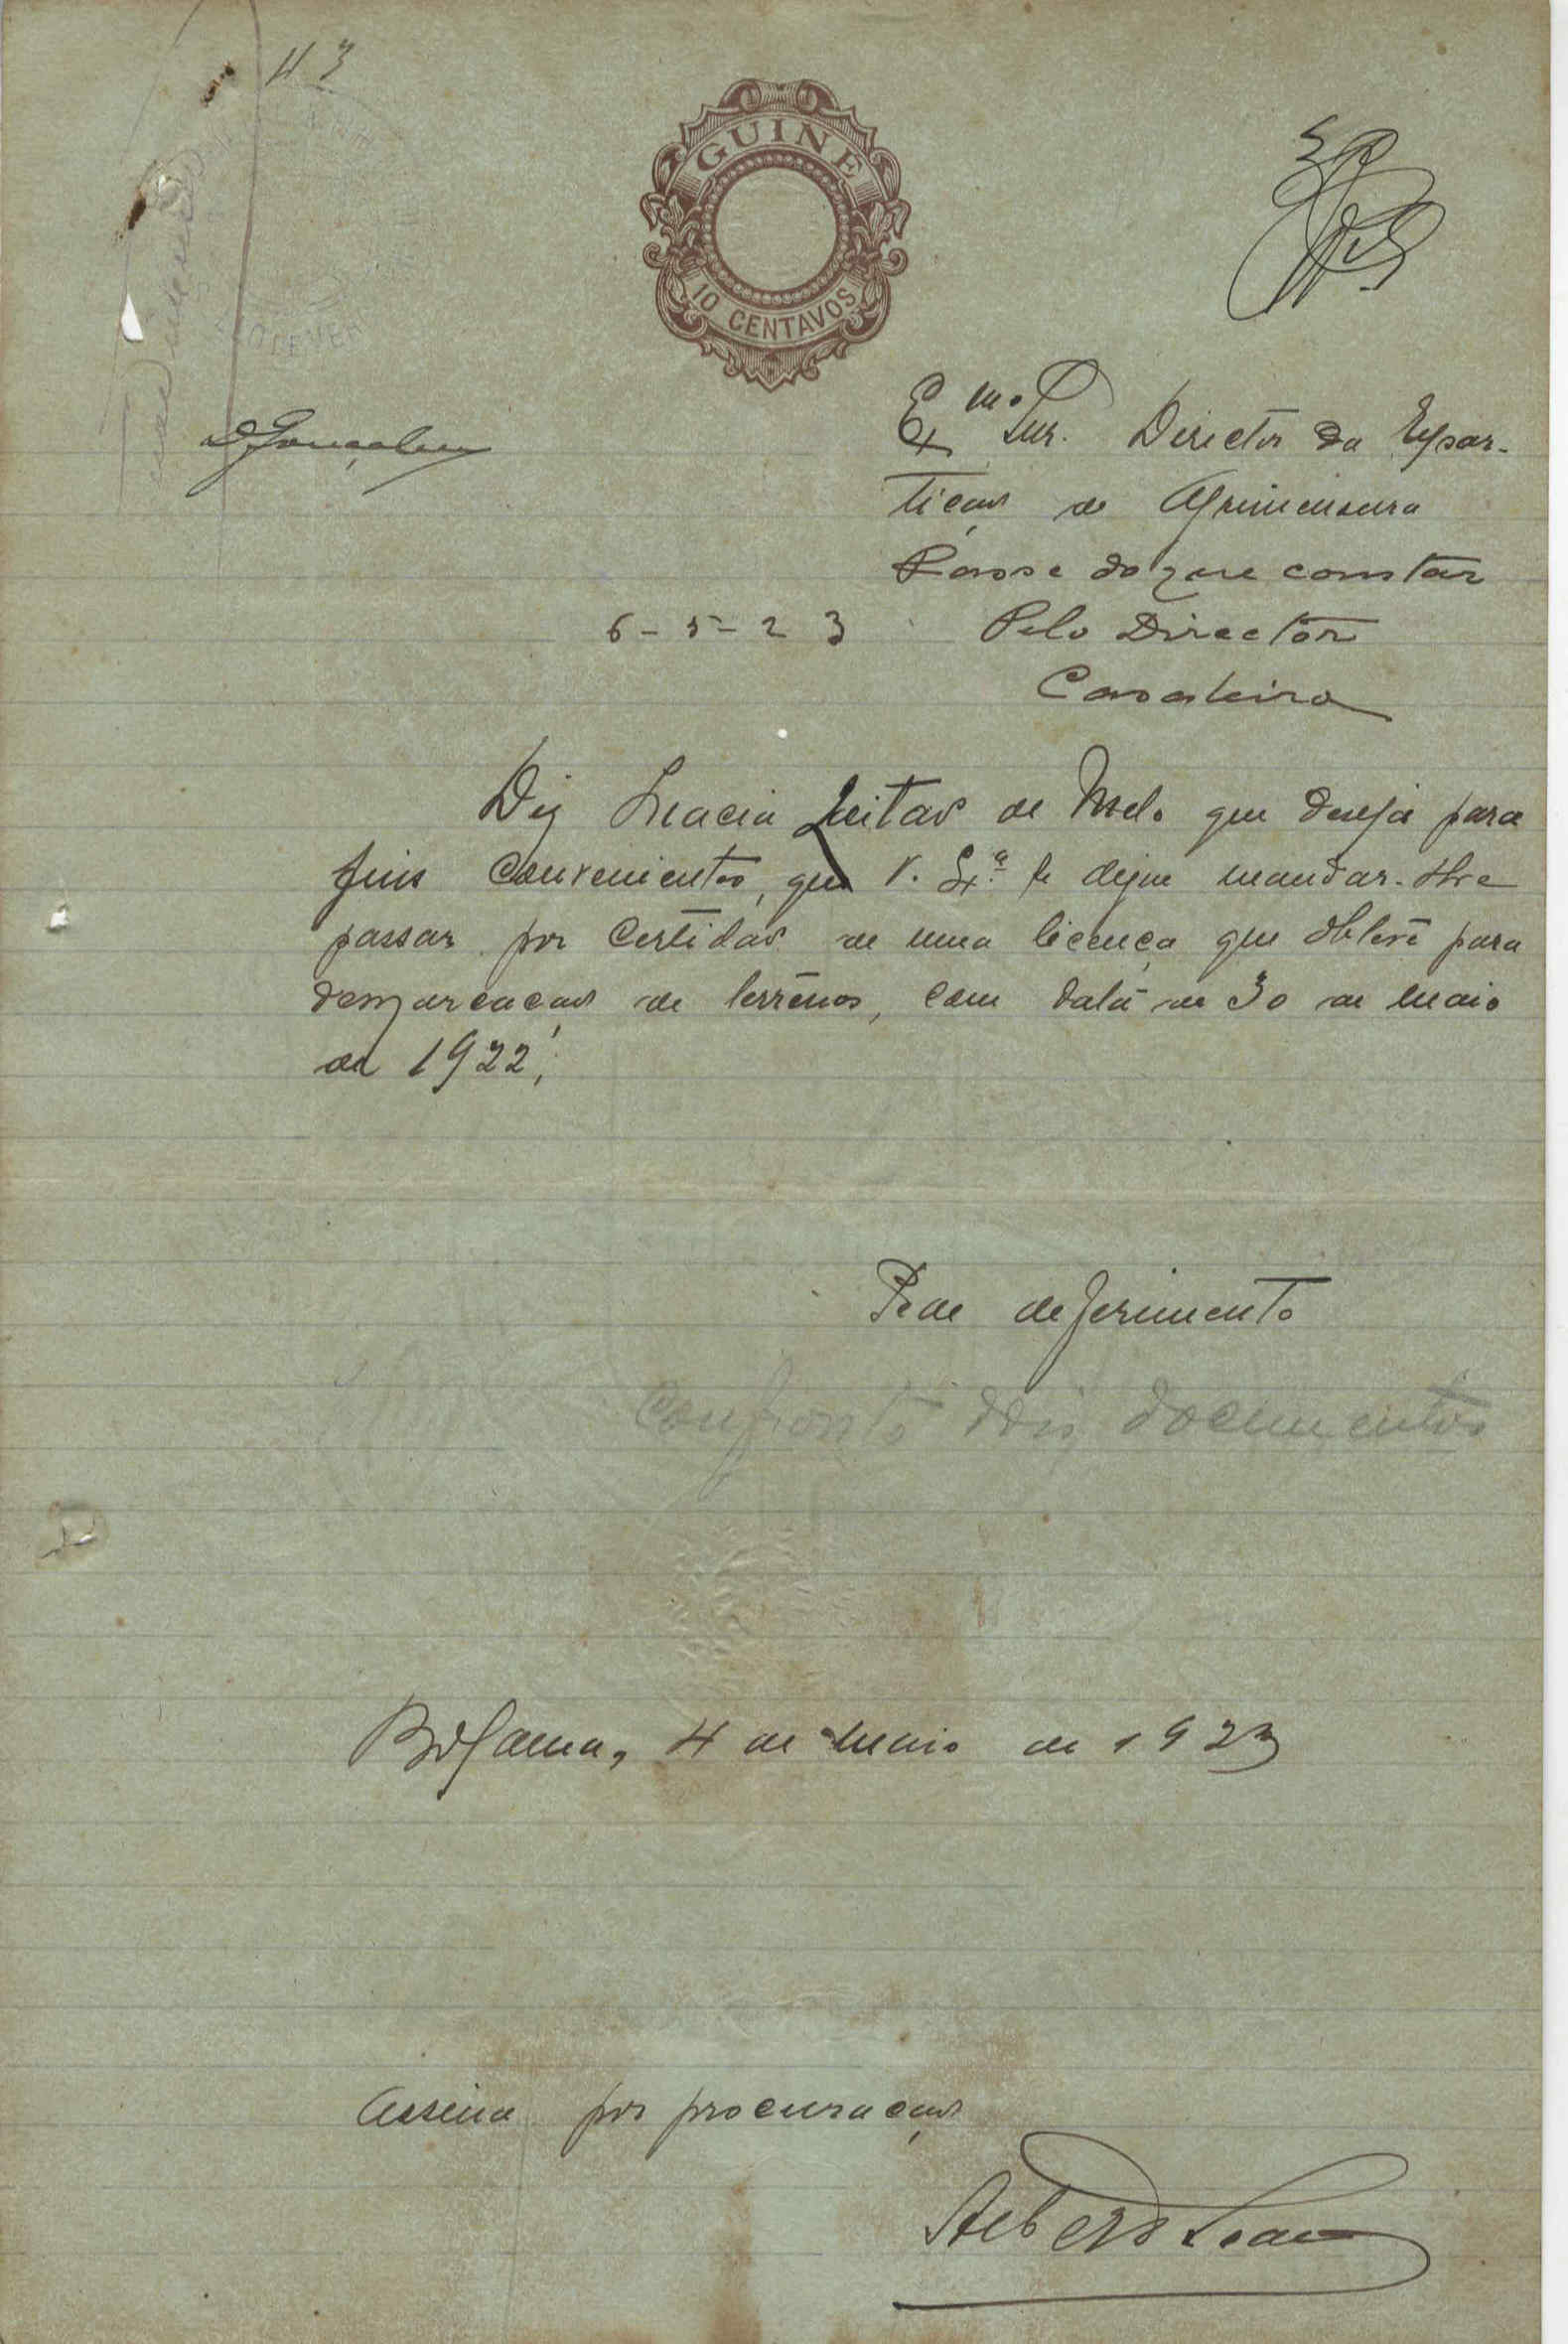 43
GUINÉ
10 CENTAVOS
DGonçalves
Ex.mo Snr. Director da Repar-
tição de Agrimensura
Passe do que constar
6-5-23 Pelo Director
Diz Inacia Leitão de Melo que deseja para
fins convenientes, que V. Ex.ª se digne mandar-lhe
passar por certidão de uma licença que obteve para
demarcação de terrenos, com data de 30 de maio
de 1922;
Pede deferimento
Confronto dois documentos
Bolama, 4 de Maio de 1923
Assina por procuração